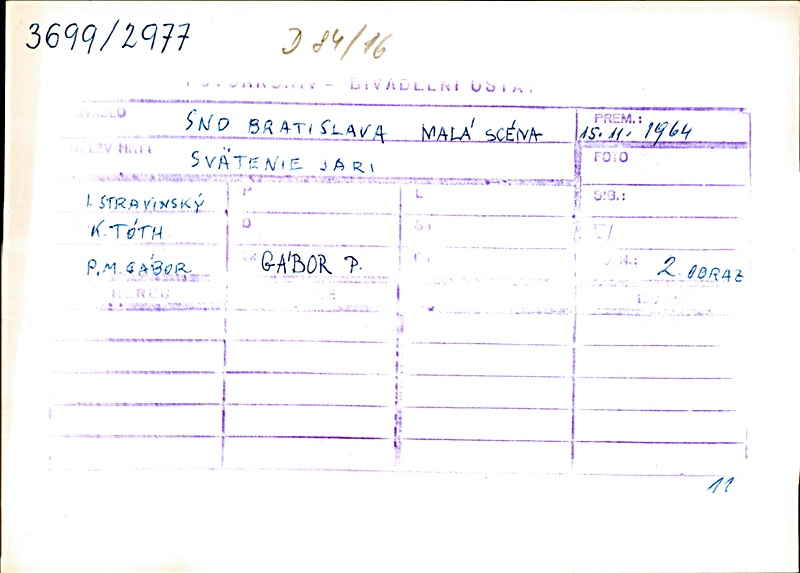 3699/2977
D 84/16
FOTOARCHÍV - DIVADELNÝ ÚSTAV
DIVADLO SND BRATISLAVA MALÁ SCÉNA PREM.: 15. 11. 1964
NÁZOV HRY SVÄTENIE JARI FOTO
I. STRAVINSKÝ P L SIG.:
K. TÓTH
P. M. GÁBOR GÁBOR P. 2. OBRAZ
HEREC
11